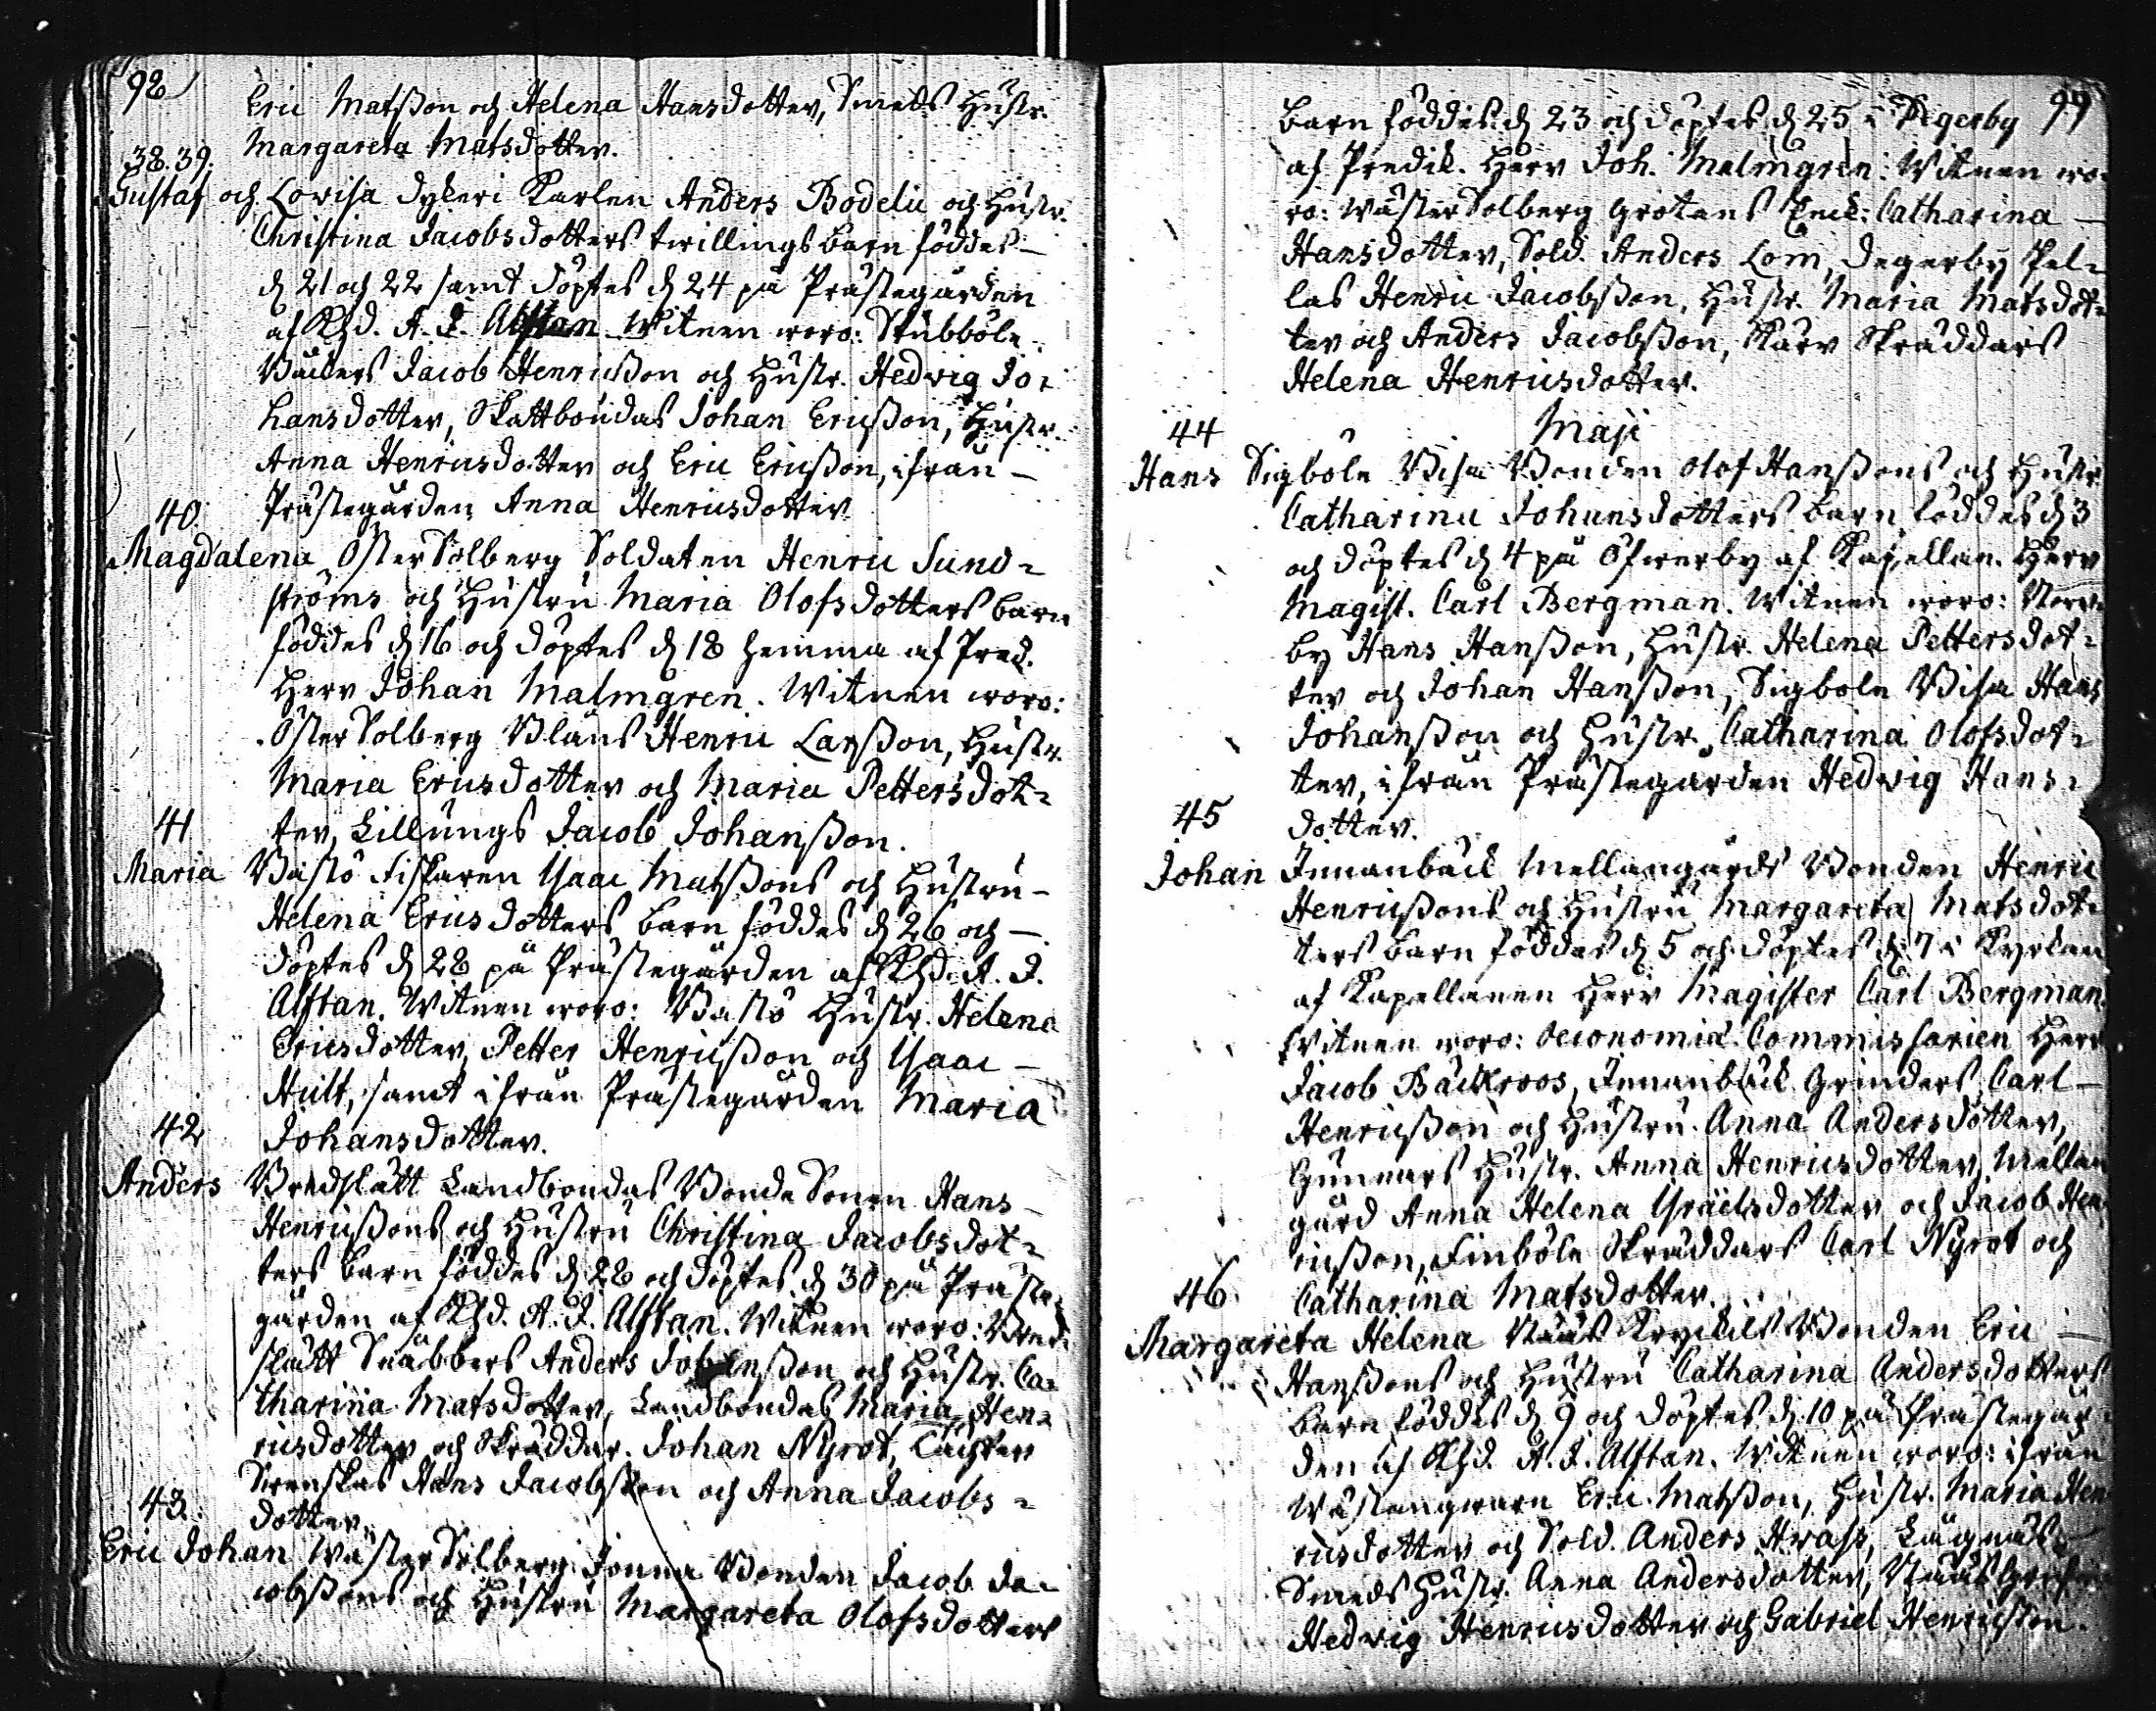 98
Eric Matsson och Helena Hansdotter, Smeds Hustr.
Margareta Matsdotter.
38. 39.
Gustaf och Lovisa Dykeri Karlen Anders Bodelii och Hustr.
Christina Jacobsdotters twillings barn föddes
d 21 och 22 samt döptes d 24 på Prästegården
af Khd. A. J. Alftan Witnen woro: Stubböle
Backers Jacob Henricsson och Hustr. Hedvig Jo-
hansdotter, Skattbondas Johan Ericsson, Hustr.
Anna Henricsdotter och Eric Ericsson, ifrån
Prästegården Anna Henricsdotter
40.
Magdalena Öster Solberg Soldaten Henric Sund-
ströms och Hustru Maria Olofsdotters barn
föddes d 16 och döptes d 18 hemma af Pred.
Herr Johan Malmgren. Witnen woro:
Öster Solberg Blåns Henric Larsson, Hustr.
Maria Ericsdotter och Maria Pettersdot-
41
ter, Lillungs Jacob Johansson.
Maria Båstö Fiskaren Isaac Matssons och Hustru
Helena Ericsdotters barn föddes d 26 och
döptes d 28 på Prästegården af Khd. A. J.
Alftan. Witnen woro: Båstö Hustr. Helena
Ericsdotter, Petter Henricsson och Isaac
Hult, samt ifrån Prästegården Maria
42
Johansdotter.
Anders Bredslätt Landbondas Bonde Sonen Hans
Henricssons och Hustru Christina Jacobsdot-
ters barn föddes d 28 och döptes d 30 på Präste-
gården af Khd. A. J. Alftan. Witnen woro: Bred-
slätt Snäbbers Anders Johansson och Hustr. Ca-
tharina Matsdotter, Landbondas Maria Hen-
ricsdotter och Skräddar. Johan Nyrot, Täckter
Svenskas Hans Jacobsson och Anna Jacobs-
43.
dotter.
Eric Johan Wäster Solberg Jonna Bonden Jacob Ja-
cobssons och Hustru Margareta Olofsdotters
99
barn föddes d 23 och döptes d 25 i Degerby
af Predik. Herr Joh. Malmgren: Witnen wo-
ro: Wäster Solberg Grotens Enck: Catharina
Hansdotter, Sold. Anders Lom, Degerby Pel-
las Henric Jacobsson, Hustr. Maria Matsdot-
ter och Anders Jacobsson, Kärr Skräddars
Helena Henricsdotter.
44
Maji
Hans Sigböle Bisa Bonden Olof Hanssons och Hustr
Catharina Johansdotters barn föddes d 3
och döptes d 4 på Öfwerby af Kapellan. Herr
Magist. Carl Bergman. Witnen woro: Norr-
by Hans Hansson, Hustr. Helena Pettersdot-
ter och Johan Hansson, Sigböle Bisa Hans
Johansson och Hustr. Catharina Olofsdot-
ter, ifrån Prästegården Hedvig Hans-
45
dotter.
Johan Innanbäck Mellangårds Bonden Henric
Henricssons och Hustru Margareta Matsdot-
ters barn föddes d 5 och döptes d 7 i Kyrkan
af Kapellanen Herr Magister Carl Bergman.
Witnen woro: Oeconomiæ Commissarien Herr
Jacob Bäckroos, Innanbäck Grinders Carl
Henricsson och Hustru Anna Andersdotter,
Gunnars Hustr. Anna Henricsdotter, Mellan
gård Anna Helena Israelsdotter och Jacob Hen-
ricsson, Finböle Skräddars Carl Nyrot och
46.
Catharina Matsdotter.
Margareta Helena Näås Kryckils Bonden Eric
Hanssons och Hustru Catharina Andersdotters
barn föddes d 9 och döptes d 10 på Prästegår-
den af Khd. A. J. Alftan. Witnen woro: ifrån
Wästangwarn Eric Matsson, Hustr. Maria Hen
ricsdotter och Sold. Anders Hwass, Lägnäs
Smeds Hustr. Anna Andersdotter, Näås
Hedvig Henricsdotter och Gabriel Henricsson.